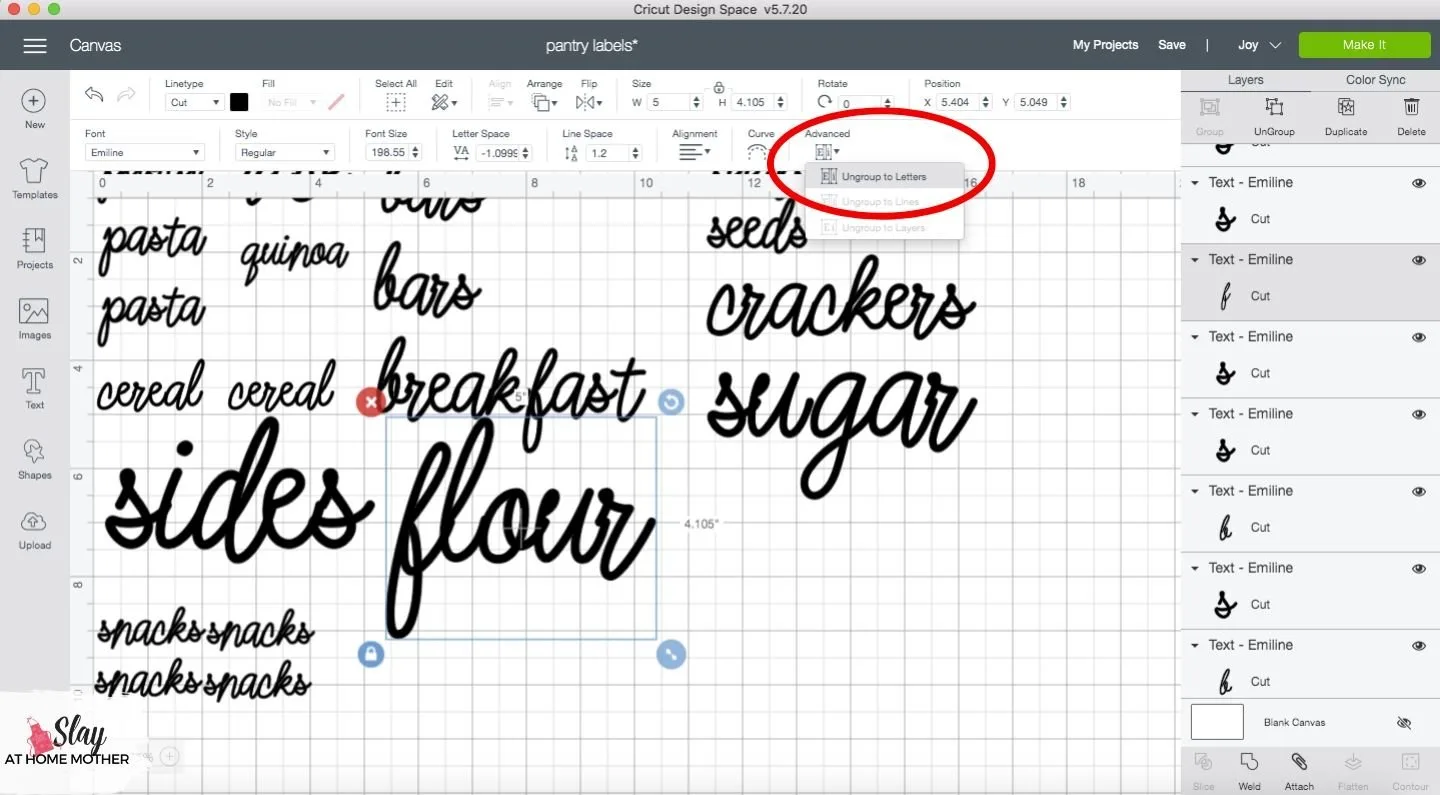 Cricut Design Space v5.7.20
Canvas
pantry labels*
My Projects Save | Joy Make It
Linetype Fill Select All Edit Align Arrange Flip Size Rotate Position
Cut No Fill W 5 H 4.105 0 X 5.404 Y 5.049
Font Style Font Size Letter Space Line Space Alignment Curve Advanced
Emiline Regular 198.55 VA -1.0999 1.2
Ungroup to Letters
Ungroup to Lines
Ungroup to Layers
New
Templates
Projects
Images
Text
Shapes
Upload
0 2 4 6 8 10 12 16 18
2
4
6
8
bars
pasta quinoa seeds
bars crackers
pasta
cereal cereal breakfast sugar
5"
sides flour
4.105"
snacks snacks
snacks snacks
Layers Color Sync
Group UnGroup Duplicate Delete
Cut
Text - Emiline
Cut
Text - Emiline
f Cut
Text - Emiline
Cut
Text - Emiline
Cut
Text - Emiline
b Cut
Text - Emiline
Cut
Text - Emiline
b Cut
Blank Canvas
Slice Weld Attach Flatten Contour
Slay
AT HOME MOTHER